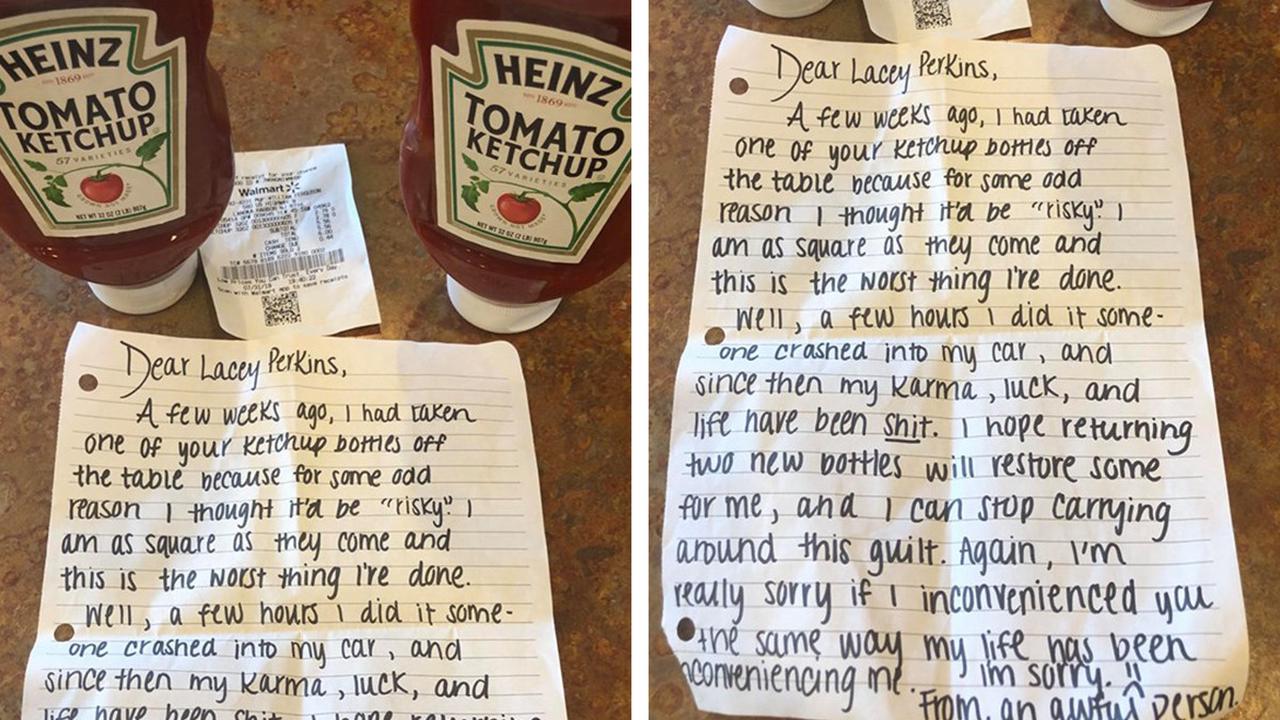 HEINZ
1869
TOMATO
KETCHUP
57 VARIETIES
GROWN NOT MADE
NET WT 32 OZ (2 LB) 907g
Walmart
SUBTOTAL
TOTAL
CASH TEND
CHANGE DUE
Low Prices You Can Trust. Every Day.
07/31/19
Scan with Walmart app to save receipts
HEINZ
1869
TOMATO
KETCHUP
57 VARIETIES
GROWN NOT MADE
NET WT 32 OZ (2 LB) 907g
Dear Lacey Perkins,
A few weeks ago, I had taken
one of your ketchup bottles off
the table because for some odd
reason I thought it'd be "risky". I
am as square as they come and
this is the worst thing I've done.
Well, a few hours I did it some-
one crashed into my car, and
since then my karma, luck, and
life have been shit. I hope returning
Dear Lacey Perkins,
A few weeks ago, I had taken
one of your ketchup bottles off
the table because for some odd
reason I thought it'd be "risky". I
am as square as they come and
this is the worst thing I've done.
Well, a few hours I did it some-
one crashed into my car, and
since then my karma, luck, and
life have been shit. I hope returning
two new bottles will restore some
for me, and I can stop carrying
around this guilt. Again, I'm
really sorry if I inconvenienced you
the same way my life has been
inconveniencing me. I'm sorry. !!
From, an awful person.